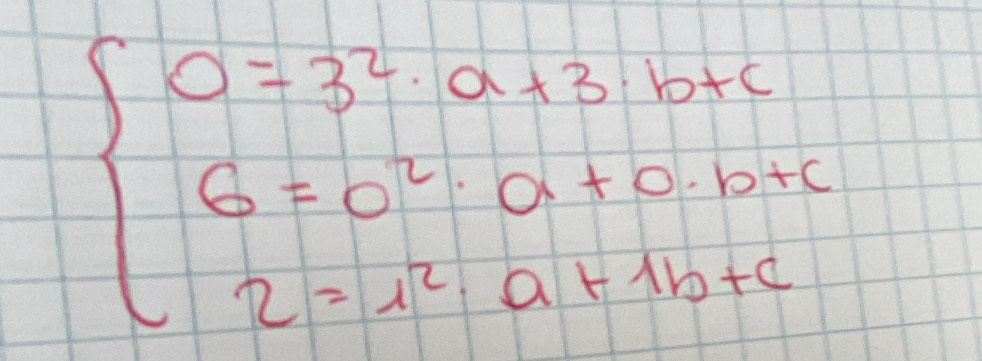 0 = 3² · a + 3 · b + c
6 = 0² · a + 0 · b + c
2 = 1² · a + 1b + c